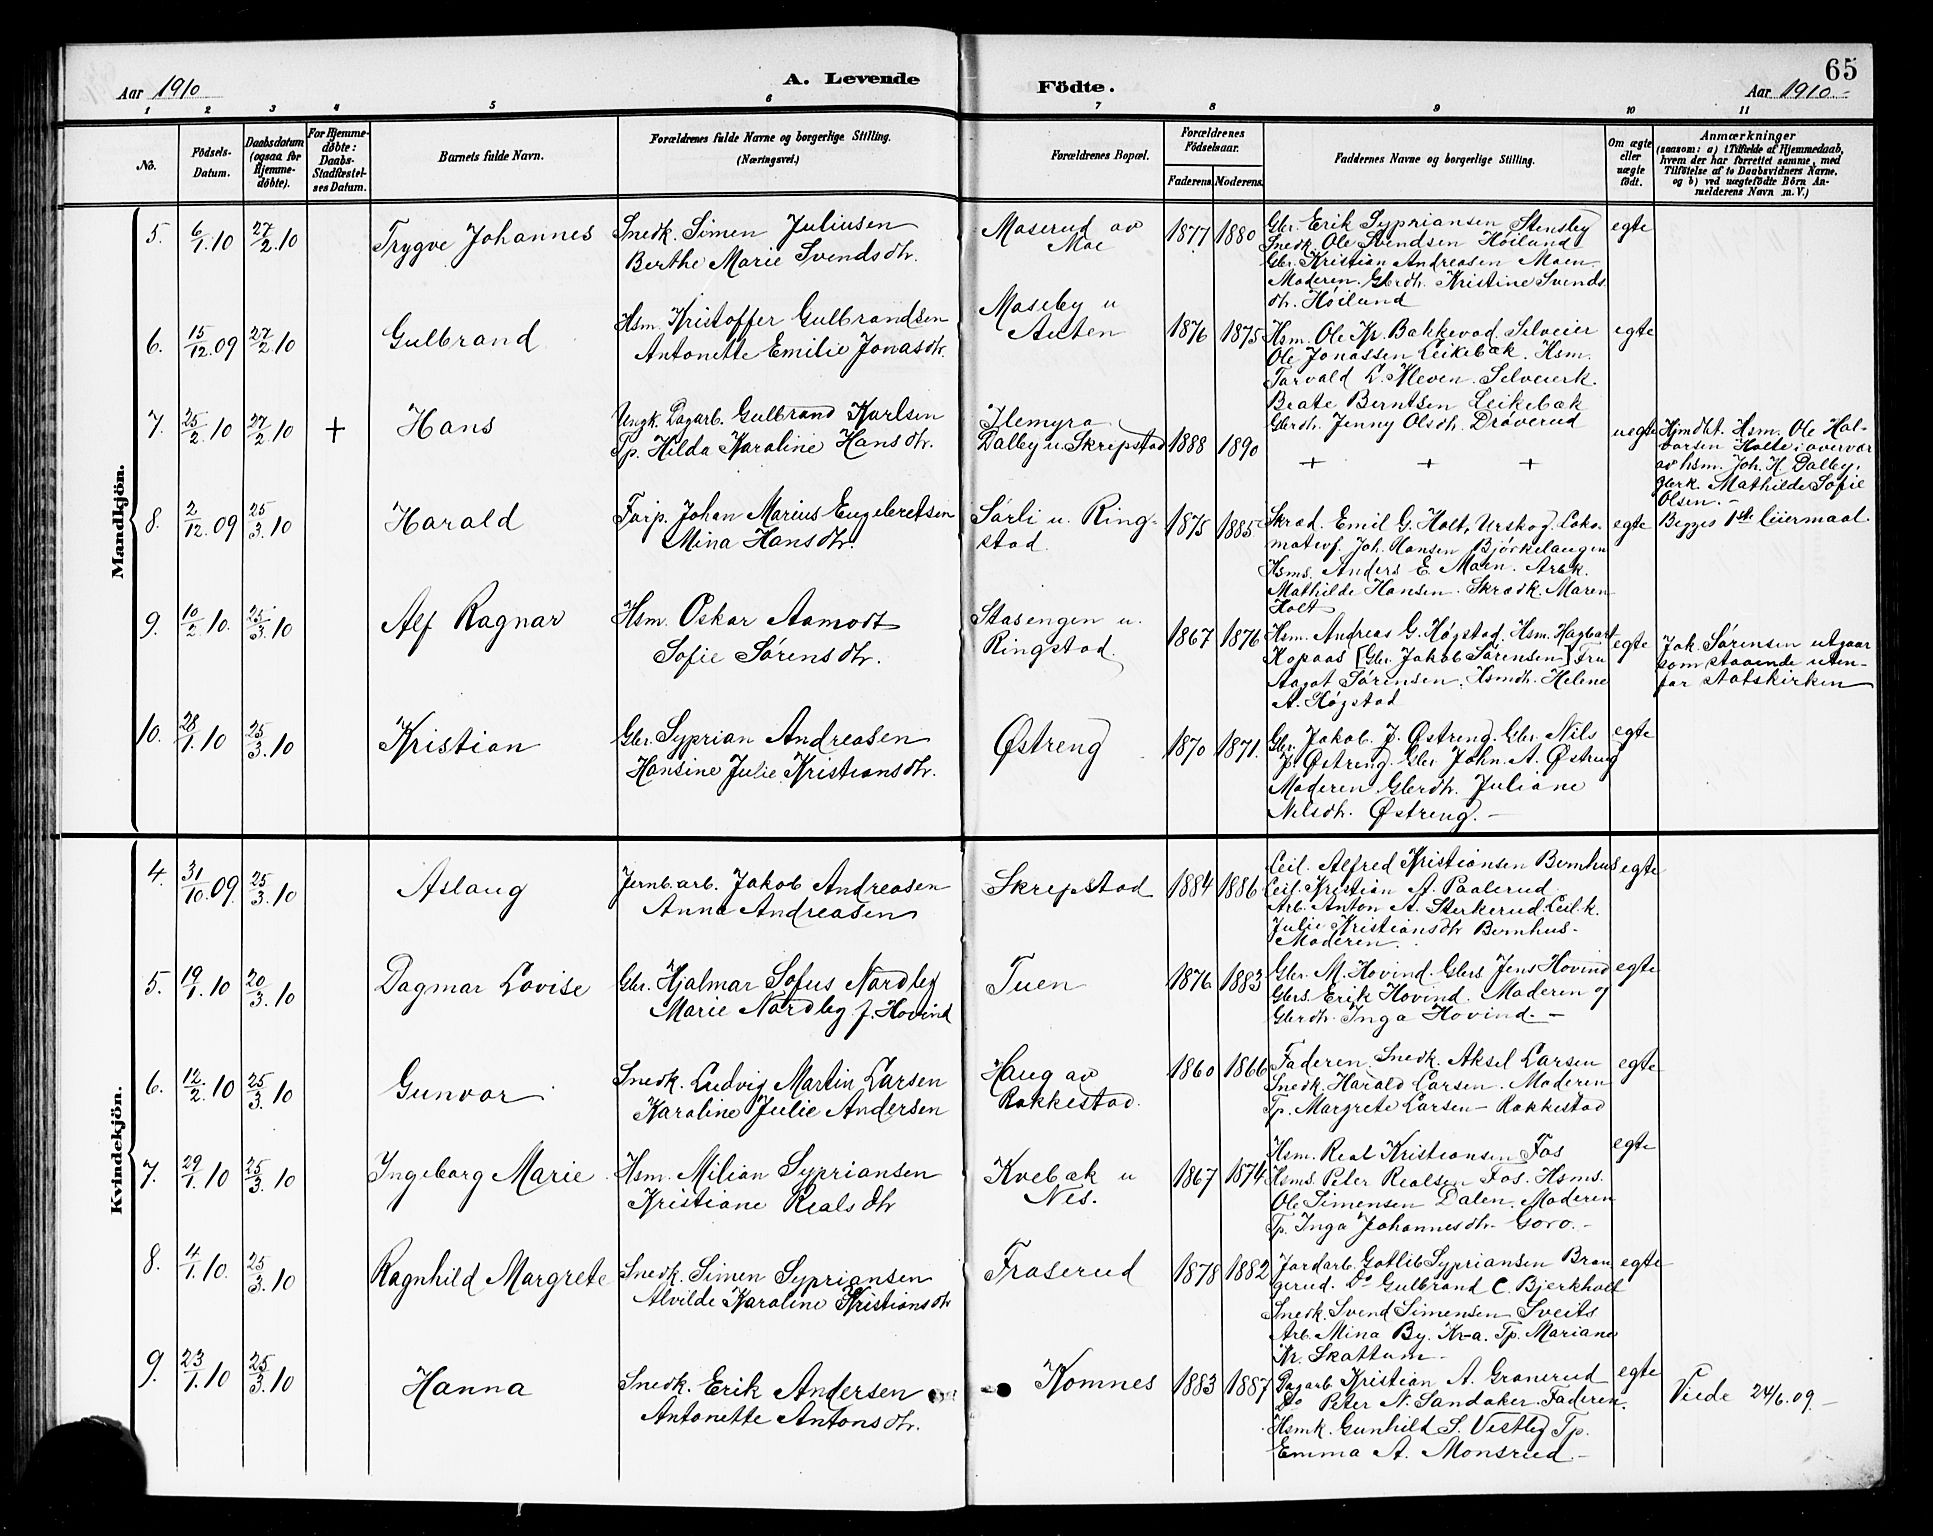 65
Aar 1910
A. Levende
Födte.
Aar 1910.-
1 2 3 4 5 6 7 8 9 10 11
No.
Födsels-
Datum.
Daabsdatum
(ogsaa for
Hjemme-
döbte).
For Hjemme-
döbte:
Daabs-
Stadfæstel-
ses Datum.
Barnets fulde Navn.
Forældrenes fulde Navne og borgerlige Stilling.
(Næringsvei.)
Forældrenes Bopæl.
Forældrenes
Födselsaar.
Faderens. Moderens.
Faddernes Navne og borgerlige Stilling.
Om ægte
eller
uægte
födt.
Anmærkninger
(saasom: a) i Tilfælde af Hjemmedaab,
hvem der har forrettet samme, med
Tilföielse af to Daabsvidners Navne.
og b) ved uægtefödte Börn An-
melderens Navn m. V.)
Mandkjön.
5. 6/1.10 27/2.10 Trygve Johannes
Snedk. Simen Juliusen
Berthe Marie Svendsdtr.
Moserud av
Moe
1877 1880
Gbr. Erik Sypriansen Stensby
Snedk. Ole Svendsen Høilund
Gbr. Kristian Andreasen Moen
Moderen. Gbrdtr. Kristine Svends
dtr. Høilund
egte
6. 15/12.09 27/2.10 Gulbrand
Hsm. Kristoffer Gulbrandsen
Antonette Emilie Jonasdtr.
Moseby u
Auten
1876 1875
Hsm. Ole Kr. Bakkevad. Selveier
Ole Jonassen Leikebæk. Hsm.
Torvald L. Kleven. Selveierk.
Beate Berntsen Leikebæk
Gbrdtr. Jenny Olsdtr. Drøverud
egte
7. 25/2.10 27/2.10 + Hans
Ungk. Dagarb. Gulbrand Karlsen
Tp. Hilda Karoline Hansdtr.
Ilemyra
Dalby u. Skripstad
1888 1890
+ + +
uegte
Hjmdbt. Hsm. Ole Hal-
vorsen Holte i overvær
av hsm. Joh. H. Dalby,
gbrk. Mathilde Sofie
Olsen.-
Begges 1ste leiermaal.
8. 2/12.09 25/3.10 Harald
Forp. Johan Marius Engebretsen
Mina Hansdtr.
Sørli u. Ring-
stad.
1875 1885
Skræd. Emil G. Holt, Urskog. Loko-
motivf. Joh. Hansen Bjørkelangen
Hsms. Anders E. Moen. Arbk.
Mathilde Hansen. Skrædk. Maren
Holt
egte
9. 10/2.10. 25/3.10 Alf Ragnar
Hsm. Oskar Aamodt
Sofie Sørensdtr.
Stasengen u.
Ringstad.
1867 1876
Hsm. Andreas G. Høgstad. Hsm. Hagbart
Kopaas [Gbr. Jakob Sørensen] Fru
Aagot Sørensen. Hsmdtr. Helene
A. Høgstad
egte
Jak. Sørensen utgaar
som staaende uten-
for statskirken
10. 28/1.10 25/3.10 Kristian
Gbr. Syprian Andreasen
Hansine Julie Kristiansdtr.
Østreng
1870 1871.
Gbr. Jakob J. Østreng. Gbr. Nils
J. Østreng. Gbr. John A. Østreng
Moderen. Gbrdtr. Juliane
Nilsdtr. Østreng.-
egte
Kvindekjön.
4. 31/10.09. 25/3.10 Aslaug
Jernb.arb. Jakob Andreasen
Anna Andreasen
Skripstad
1884 1886
Leil. Alfred Kristiansen Bernhus
Leil. Kristian A. Paalerud
Arb. Anton A. Sterkerud. Leil.k.
Julie Kristiansdtr Bernhus-
Moderen.
egte
5. 19/1.10 20/3.10 Dagmar Lovise
Gbr. Hjalmar Sofus Nordby
Marie Nordby f. Hovind
Tuen
1876 1883
Gbr. M. Hovind. Gbrs Jens Hovind
Gbrs. Erik Hovind. Moderen og
Gbrdtr. Inga Hovind.-
egte
6. 12/2.10 25/3.10 Gunvor
Snedk. Ludvig Martin Larsen
Karoline Julie Andersen
Haug av
Rakkestad.
1860 1866
Faderen. Snedk. Aksel Larsen
Snedk. Harald Larsen. Moderen
Tp. Margrete Larsen - Rakkestad
egte
7. 29/1.10 25/3.10 Ingeborg Marie
Hsm. Milian Sypriansen
Kristiane Realsdtr
Kvebæk u
Nes.
1867 1874
Hsm. Real Kristiansen Fos
Hsms. Peter Realsen Fos. Hsms.
Ole Simensen Dalen. Moderen
Tp. Inga Johannesdtr Goro.-
egte
8. 4/1.10. 25/3.10 Ragnhild Margrete
Snedk. Simen Sypriansen
Alvilde Karoline Kristiansdtr
Froserud
1878 1882
Jordarb. Gotlib Sypriansen Bran
gerud. Do Gulbrand C. Bjerkholt
Snedk. Svend Simensen Sveits
Arb. Mina By. Kr-a. Tp. Mariane
Kr. Skattum-
egte
9. 23/1.10 25/3.10 Hanna
Snedk. Erik Andersen
Antonette Antonsdtr.
Komnes
1883 1887
Dagarb. Kristian A. Granerud
Do Peter N. Sandaker. Faderen.
Hsmk. Gunhild S. Vestby Tp.
Emma A. Monsrud-
egte
Viede 24/6.09.-